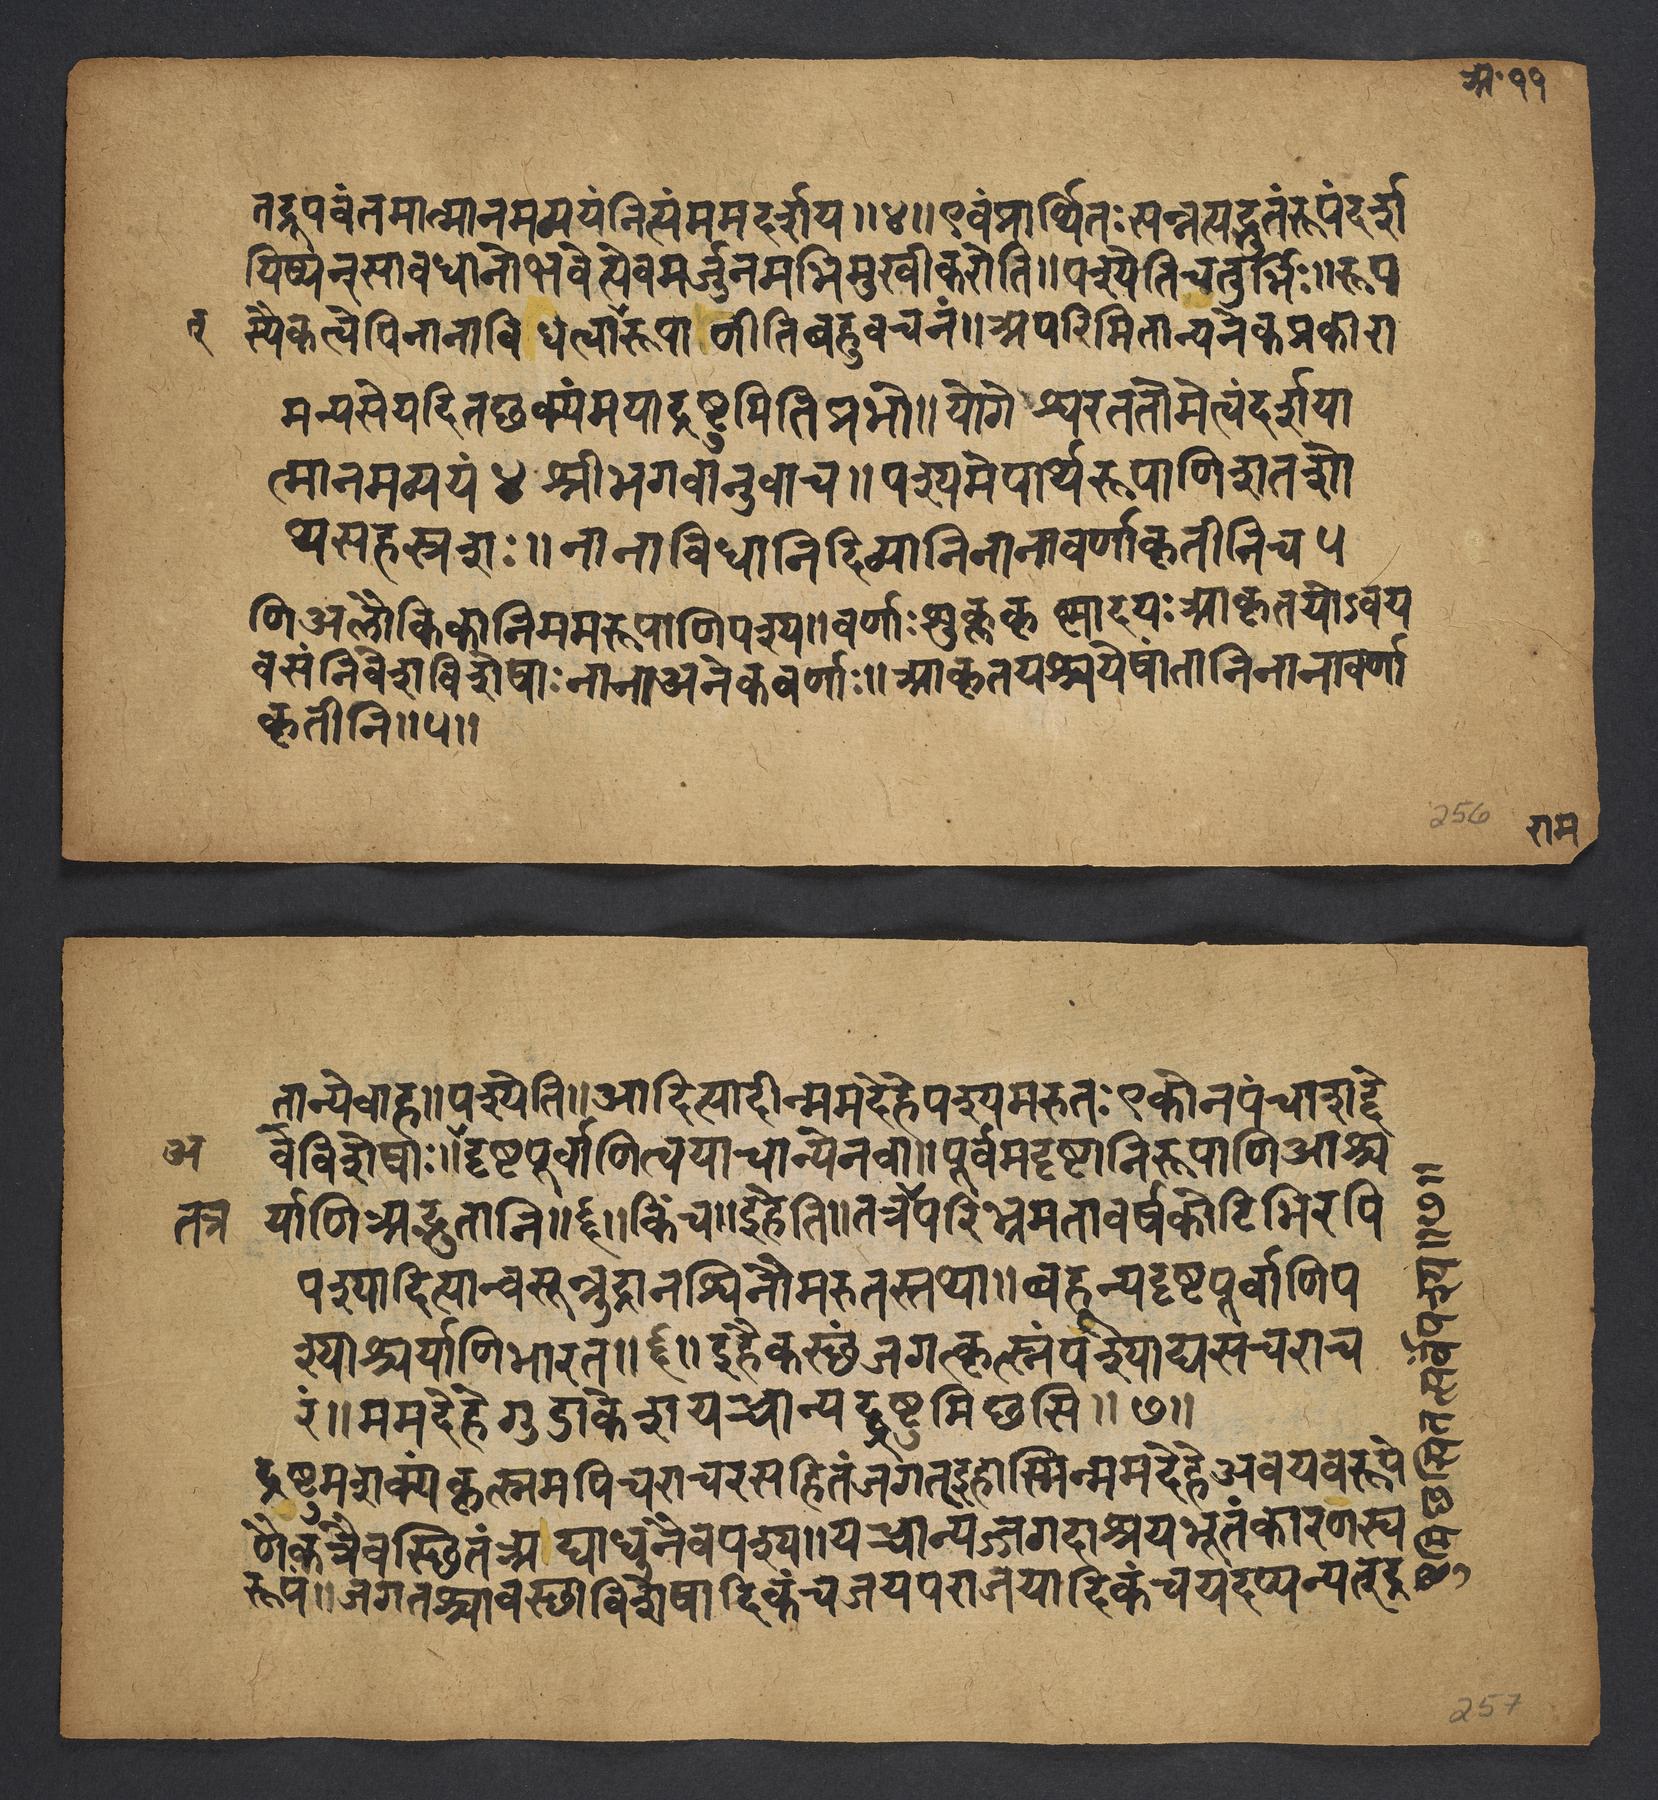 अ॰११
तद्रूपवंतमात्मानमव्ययंनित्यंममदर्शय॥४॥एवंप्रार्थितःसन्नत्यद्भुतंरूपंदर्श
यिष्यन्सावधानोभवेत्येवमर्जुनमभिमुखीकरोति॥पश्येतिचतुर्भिः॥रूप
स्यैकत्वेपिनानाविधत्वारूपाणीतिबहुवचनं॥अपरिमितान्यनेकप्रकारा
त्
मन्यसेयदितछक्यंमयाद्रष्टुमितिप्रभो॥योगेश्वरततोमेत्वंदर्शया
त्मानमव्ययं ४ श्रीभगवानुवाच॥पश्यमेपार्थरूपाणिशतशो
थसहस्रशः॥नानाविधानिदिव्यानिनानावर्णाकृतीनिच ५
णिअलौकिकानिममरूपाणिपश्य॥वर्णाःशुक्लकृष्णादयःआकृतयोऽवय
वसंनिवेशविशेषाःनानाअनेकवर्णाः॥आकृतयश्चयेषांतानिनानावर्णा
कृतीनि॥५॥
256
राम
तान्येवाह॥पश्येति॥आदित्यादीन्ममदेहेपश्यमरुतःएकोनपंचाशद्दे
वविशेषाः॥दृष्टपूर्वाणित्वयाचान्येनवा॥पूर्वमदृष्टानिरूपाणिआश्च
अ
र्याणिअद्भुतानि॥६॥किंच॥इहेति॥तत्रपरिभ्रमतावर्षकोटिभिरपि
तत्र
पश्यादित्यान्वसून्रुद्रानश्विनौमरुतस्तथा॥बहून्यदृष्टपूर्वाणिप
श्याश्चर्याणिभारत॥६॥इहैकस्छंजगत्कृत्स्नंपश्याद्यसचराच
रं॥ममदेहेगुडाकेशयच्चान्यद्द्रष्टुमिछसि॥७॥
द्रष्टुमशक्यंकृत्स्नमपिचराचरसहितंजगत्इहास्मिन्ममदेहेअवयवरूपे
णैकत्रैवस्छितंअद्याधुनैवपश्य॥यच्चान्यज्जगदाश्रयभूतंकारणस्व
रूपं॥जगतश्चावस्छाविशेषादिकंचजयपराजयादिकंचयदप्यन्यत्द्र
ष्टुमिछसितत्सर्वंपश्य॥७॥
257